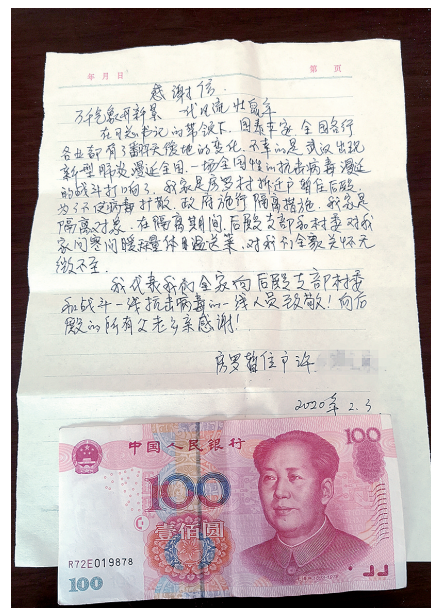 年 月 日 第 页
感谢信
万千气象开新景 一代风流壮家
在习总书记的带领下,国泰丰家,全国各行
各业都有了翻天复地的变化。不幸的是武汉出现
新型肺炎漫延全国,一场全国性的抗击病毒漫延
的战斗打响了。我家是房罗村拆迁户暂住后殿,
为了不使病毒扩散,政府施行隔离措施。我家是
隔离对象。在隔离期间,后殿支部和村委对我
家问寒问暖测量体温送菜,对我们全家关怀无
微不至。
我代表我们全家向后殿支部村委
和战斗一线抗击病毒的一线人员致敬!向后
殿的所有父老乡亲感谢!
房罗暂住户许
2020年2.3
中国人民银行 100
100
壹佰圆
R72E019878
100